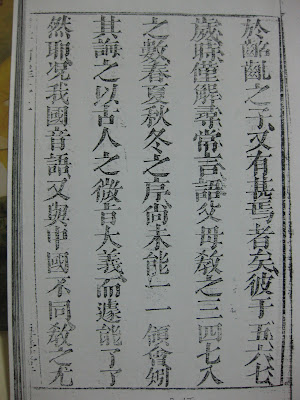 於齠齔之子又有甚焉者矣彼于五六七
歲時僅解尋常言語父母敎之三四七八
之數春夏秋冬之序尚未能一一領會矧
其誨之以古人之微言大義而遽能了了
然耶况我國音語又與中國不同敎之尤